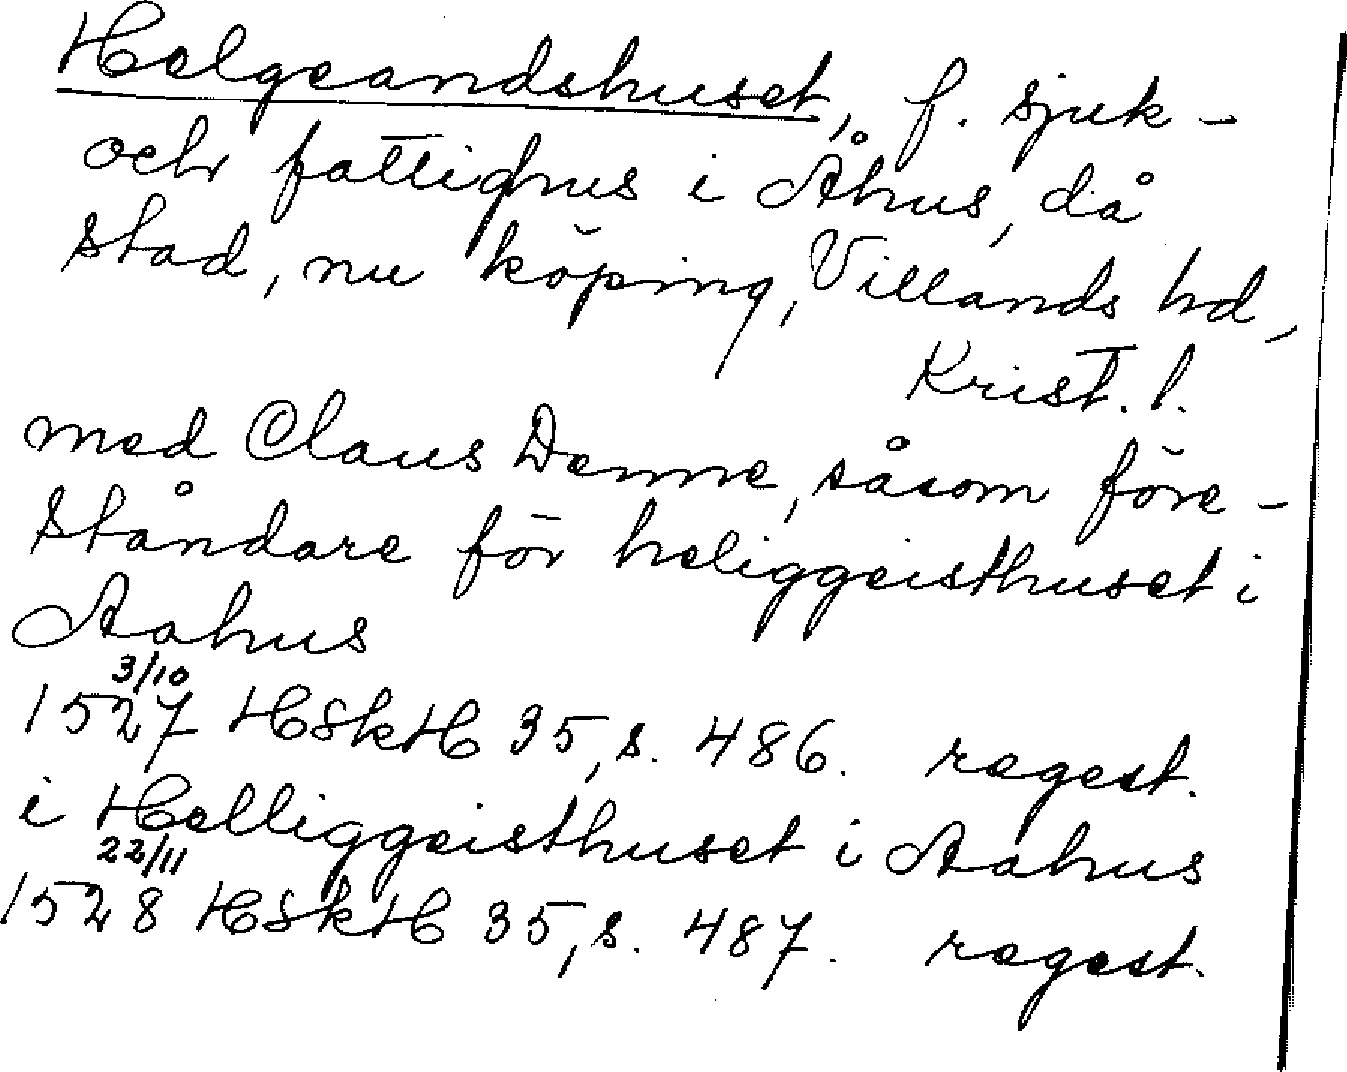 Helgeandshuset, f. sjuk-
och fattighus i Åhus, då
stad, nu köping, Villands hd,
Krist. l.
med Claus Denne, såsom före-
ståndare för heliggeisthuset i
Aahus
3/10
1527 HSkH 35, s. 486. regest.
i Helliggeisthuset i Aahus
22/11
1528 HSkH 35, s. 487. regest.